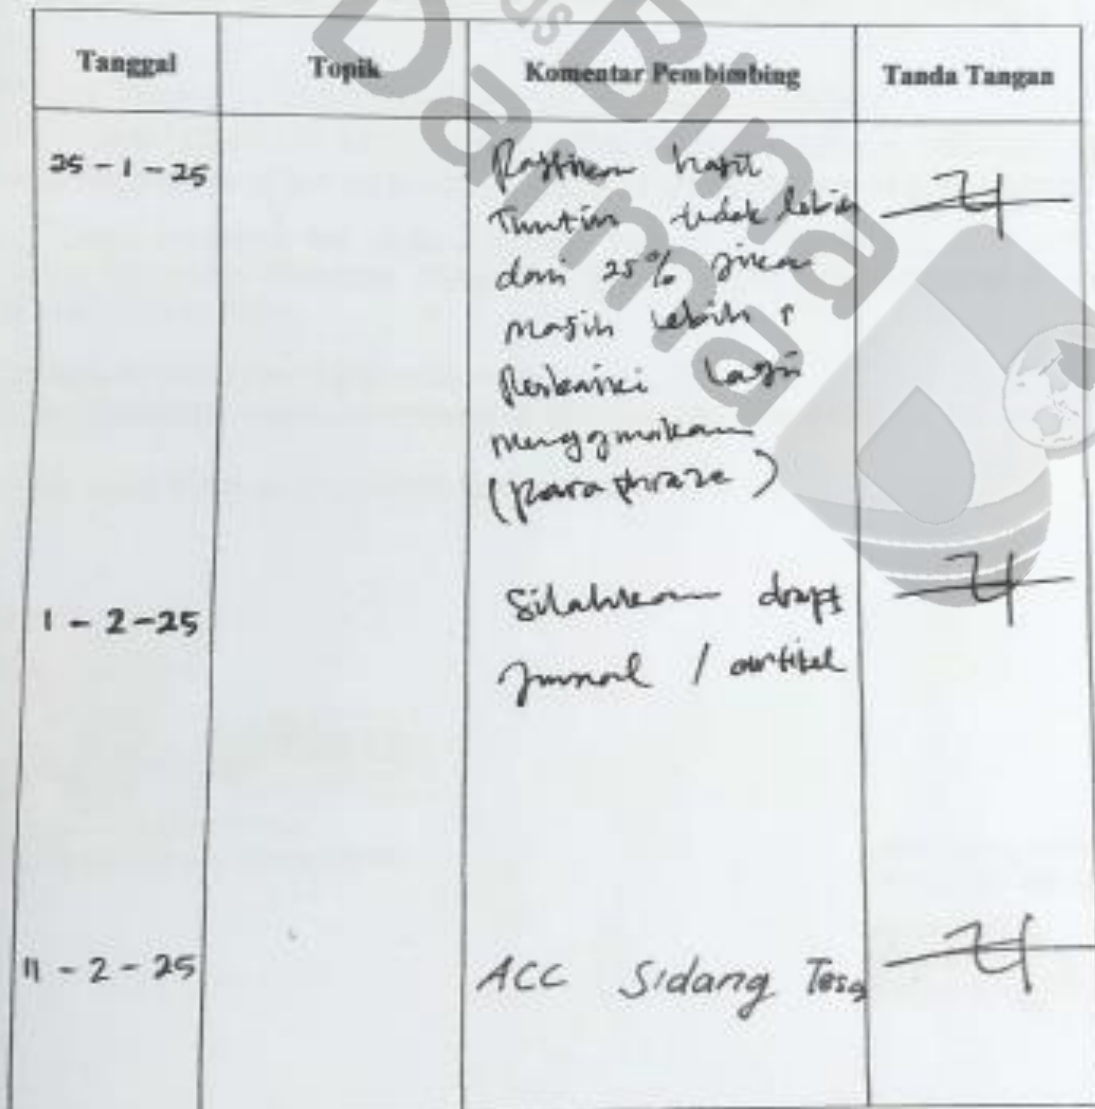 us
Bina
Darma
Tanggal Topik Komentar Pembimbing Tanda Tangan
25 - 1 - 25 Pastikan hasil
Turnitin tidak lebih
dari 25% jika
masih lebih
Perbaiki lagi
menggunakan
(paraphraze)
1 - 2 - 25 Silahkan draft
Jurnal / artikel
11 - 2 - 25 ACC Sidang Tesis